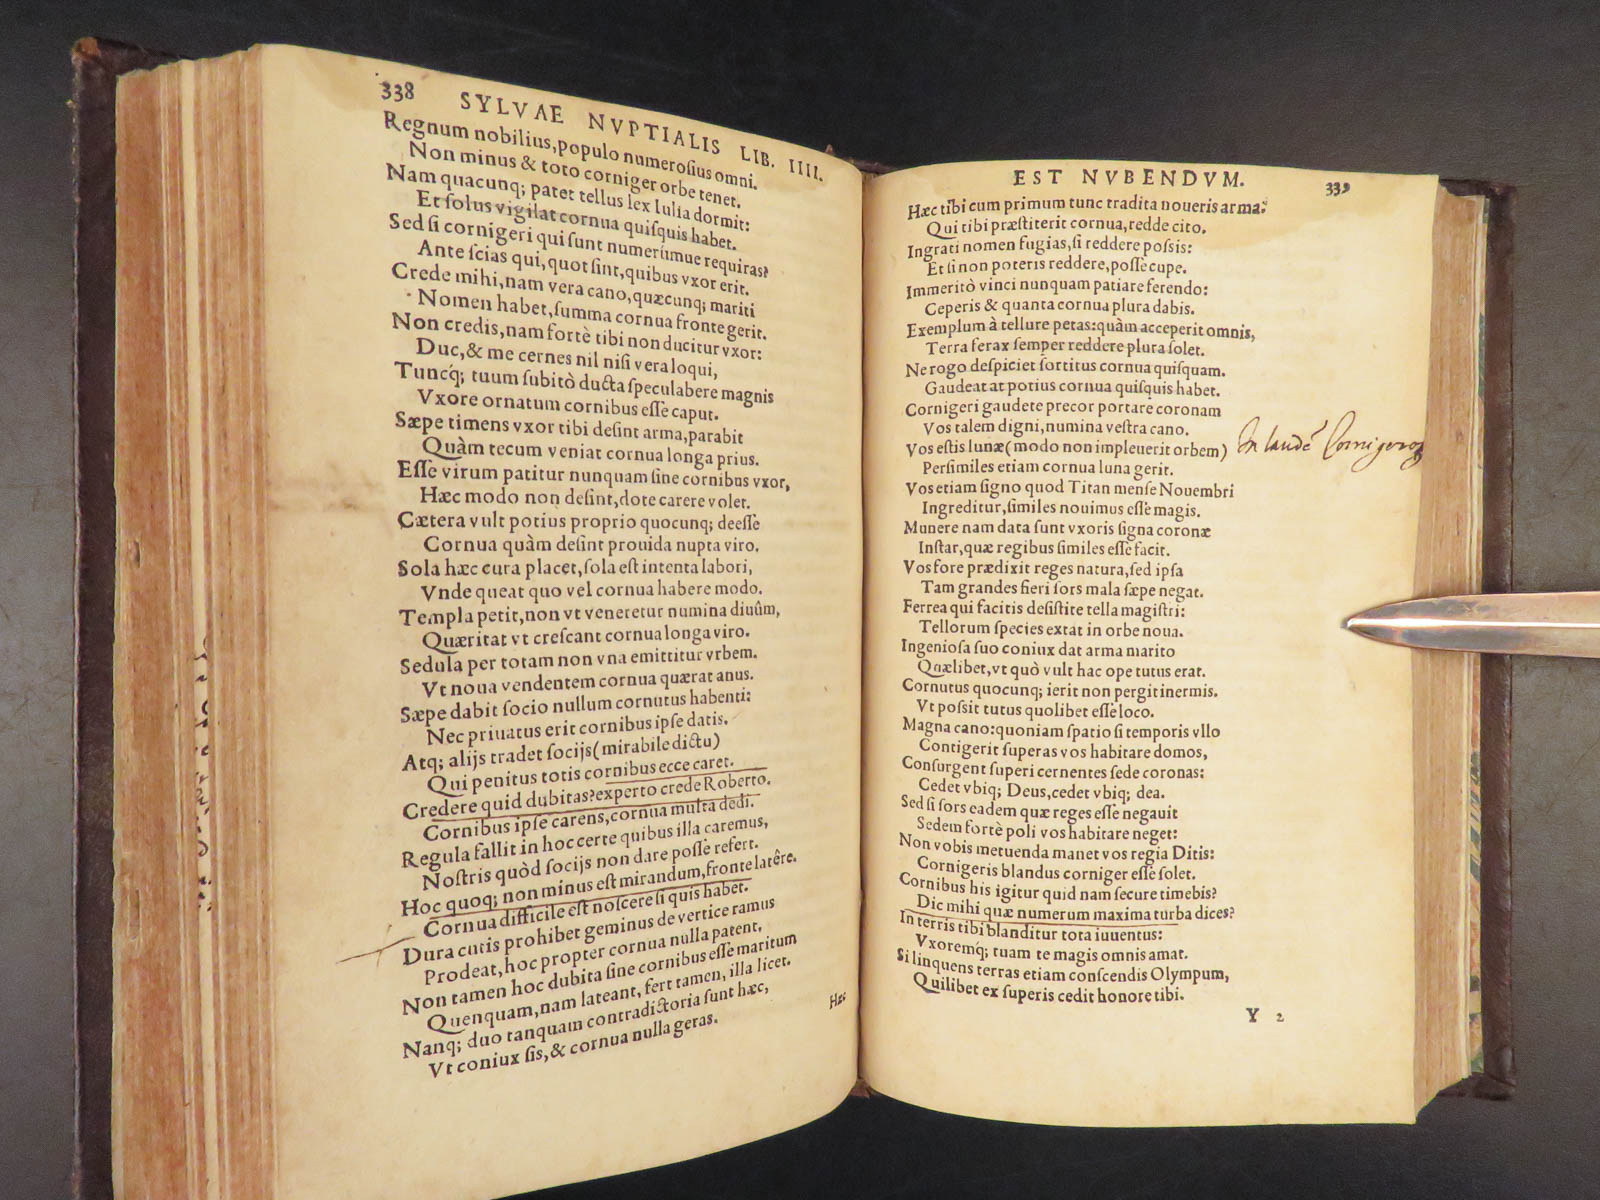 338 SYLVAE NVPTIALIS LIB. IIII.
Regnum nobilius,populo numeroſius omni.
Non minus & toto corniger orbe tenet.
Nam quacunq; patet tellus lex Iulia dormit:
Et ſolus vigilat cornua quiſquis habet.
Sed ſi cornigeri qui ſunt numerúmue requiras?
Ante ſcias qui,quot ſint,quibus vxor erit.
Crede mihi,nam vera cano,quæcunq; mariti
Nomen habet,ſumma cornua fronte gerit.
Non credis,nam fortè tibi non ducitur vxor:
Duc,& me cernes nil niſi vera loqui,
Tuncq́; tuum ſubitò ducta ſpeculabere magnis
Vxore ornatum cornibus eſſe caput.
Sæpe timens vxor tibi deſint arma,parabit
Quàm tecum veniat cornua longa prius.
Eſſe virum patitur nunquam ſine cornibus vxor,
Hæc modo non deſint,dote carere volet.
Cætera vult potius proprio quocunq; deeſſe
Cornua quàm deſint prouida nupta viro.
Sola hæc cura placet,ſola eſt intenta labori,
Vnde queat quo vel cornua habere modo.
Templa petit,non vt veneretur numina diuûm,
Quæritat vt creſcant cornua longa viro.
Sedula per totam non vna emittitur vrbem.
Vt noua vendentem cornua quærat anus.
Sæpe dabit ſocio nullum cornutus habenti:
Nec priuatus erit cornibus ipſe datis.
Atq; alijs tradet ſocijs(mirabile dictu)
Qui penitus totis cornibus ecce caret.
Credere quid dubitas?experto crede Roberto.
Cornibus ipſe carens,cornua multa dedi.
Regula fallit in hoc certe quibus illa caremus,
Noſtris quòd ſocijs non dare poſſe refert.
Hoc quoq; non minus eſt mirandum,fronte latêre.
Cornua difficile eſt noſcere ſi quis habet.
Dura cutis prohibet geminus de vertice ramus
Prodeat,hoc propter cornua nulla patent.
Non tamen hoc dubita ſine cornibus eſſe maritum
Quenquam,nam lateant,fert tamen,illa licet.
Nanq; duo tanquam contradictoria ſunt hæc,
Vt coniux ſis,& cornua nulla geras.
Hæc
EST NVBENDVM. 339
Hæc tibi cum primum tunc tradita noueris arma:
Qui tibi præſtiterit cornua,redde cito.
Ingrati nomen fugias,ſi reddere poſſis:
Et ſi non poteris reddere,poſſe cupe.
Immeritò vinci nunquam patiare ferendo:
Ceperis & quanta cornua plura dabis.
Exemplum à tellure petas:quàm acceperit omnis,
Terra ferax ſemper reddere plura ſolet.
Ne rogo deſpiciet ſortitus cornua quiſquam.
Gaudeat at potius cornua quiſquis habet.
Cornigeri gaudete precor portare coronam
Vos talem digni,numina veſtra cano.
Vos eſtis lunæ(modo non impleuerit orbem)
In laudē
Perſimiles etiam cornua luna gerit.
Vos etiam ſigno quod Titan menſe Nouembri
Ingreditur,ſimiles nouimus eſſe magis.
Munere nam data ſunt vxoris ſigna coronæ
Inſtar,quæ regibus ſimiles eſſe facit.
Vos fore prædixit reges natura,ſed ipſa
Tam grandes fieri ſors mala ſæpe negat.
Ferrea qui facitis deſiſtite tella magiſtri:
Tellorum ſpecies extat in orbe noua.
Ingenioſa ſuo coniux dat arma marito
Quælibet,vt quò vult hac ope tutus erat.
Cornutus quocunq; ierit non pergit inermis.
Vt poſſit tutus quolibet eſſe loco.
Magna cano:quoniam ſpatio ſi temporis vllo
Contigerit ſuperas vos habitare domos,
Conſurgent ſuperi cernentes ſede coronas:
Cedet vbiq; Deus,cedet vbiq; dea.
Sed ſi ſors eadem quæ reges eſſe negauit
Sedem fortè poli vos habitare neget:
Non vobis metuenda manet vos regia Ditis:
Cornigeris blandus corniger eſſe ſolet.
Cornibus his igitur quid nam ſecure timebis?
Dic mihi quæ numerum maxima turba dices?
In terris tibi blanditur tota iuuentus:
Vxoremq́; tuam te magis omnis amat.
Si linquens terras etiam conſcendis Olympum,
Quilibet ex ſuperis cedit honore tibi.
Y 2